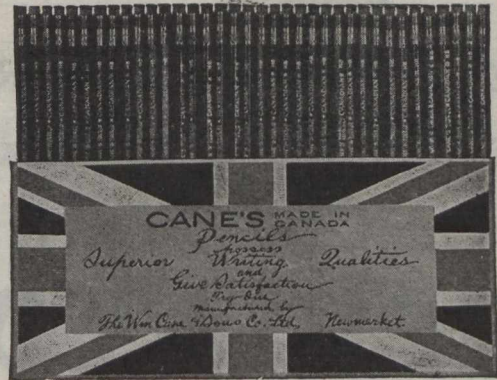 CANE'S MADE IN CANADA
Pencils
possess
Superior Writing Qualities
and
Give Satisfaction
Try One
Manufactured by
The Wm Cane & Sons Co. Ltd, Newmarket.